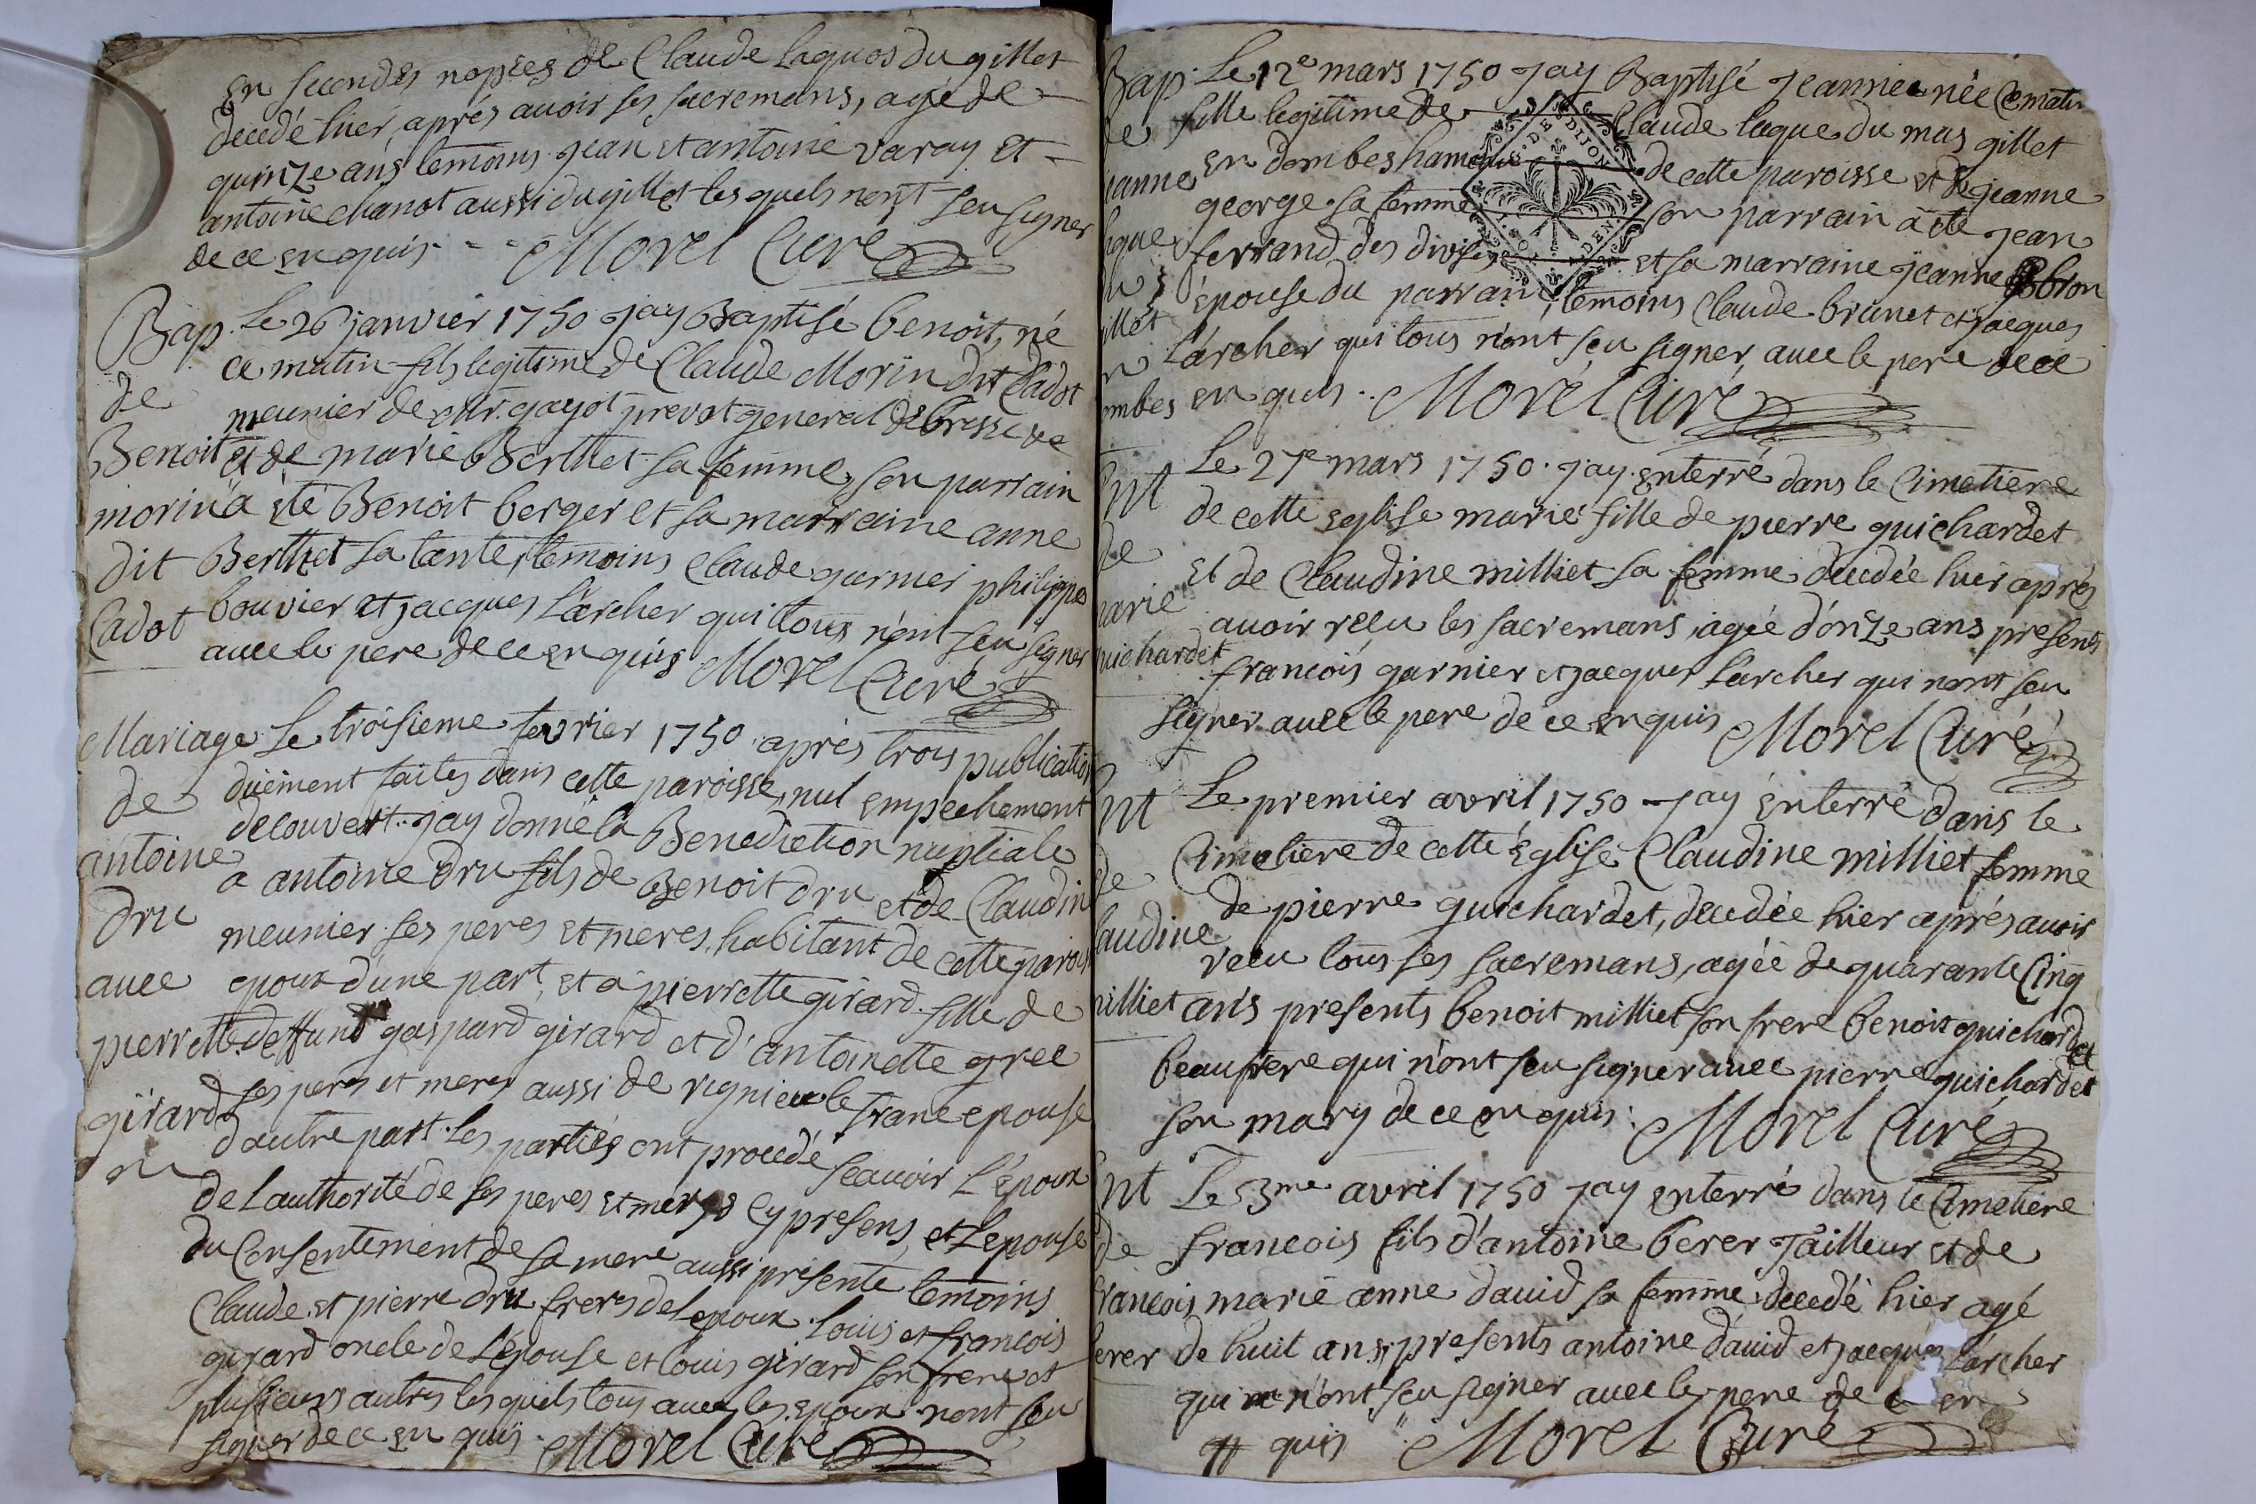 en secondes nopces de Claude laquos du gillet
decedé hier, aprés avoir ses sacremans, agé de
quinze ans temoins jean et antoine varay et
antoine chanot aussi du gillet les quels nont seu signer
de ce enquis. Morel Curé
Bap. Le 26 janvier 1750 jay Baptisé benoit, né
ce matin fils legitime de Claude Morin dit Cadot
de
meunier de mr. gayot prevot general de bresse
Benoit et de marie Berthet sa femme, son parrain
morin a été Benoit berger et sa marraine anne
dit Berthet sa tante, temoins Claude garnier philippes
Cadot bouvier et jacques Larcher qui tous n'ont seu signer
avec le pere de ce enquis Morel Curé
Mariage Le troisieme fevrier 1750 aprés trois publication
de duëment faites dans cette paroisse, nul empechement
decouvert. jay donné la Benediction nuptiale
antoine a antoine Dru fils de Benoit dru et de Claudin
dru meunier ses peres et meres habitant de cette parois
avec epoux d'une part, et a pierrette girard fille de
pierrette deffunt gaspard girard et d'antoinette gree
girard ses peres et meres aussi de vignieu le franc epouse
d'autre part. les parties ont procedé scavoir L'époux
de l'authorité de ses peres et meres cy presens, et Lepouse
du Consentement de sa mere aussi presente temoins
Claude et pierre dru freres de lepoux. louis et francois
girard oncle de L'épouse et louis girard son frere et
plusieurs autres les quels tous avec les epoux nont seu
signer de ce enquis. Morel Curé
Bap. Le 12e mars 1750 jay Baptisé jeanne née Cematin
de fille legitime de Claude laque du mas gillet
jeanne en dombes hameau de cette paroisse et de jeanne
george sa femme son parrain à été jean
DES DIJON
laque ferrand des divises et sa marraine jeanne bron
du épouse du parrain, temoins Claude brunet et jacques
gillet Larcher qui tous n'ont seu signer, avec le pere de ce
en
ombes enquis. Morel Curé
Ent Le 27e mars 1750. jay enterré dans le Cimetiere
de cette eglise marie fille de pierre guichardet
de et de Claudine milliet sa femme, decedée hier aprés
marie avoir reçu les sacremans, agée d'onze ans presents
guichardet francois garnier et jacques Larcher qui n'ont seu
signer avec le pere de ce enquis Morel Curé
Ent Le premier avril 1750 jay enterré dans le
de Cimetiere de cette Eglise Claudine milliet femme
de pierre guichardet, decedée hier aprés avoir
laudine
reçu tous ses sacremans, agée de quarante Cinq
milliet ans presents benoit milliet son frere benoit guichardet
beaufrere qui n'ont seu signer avec pierre guichardet
son mary de ce enquis. Morel Curé
Ent Le 3me avril 1750 jay enterré dans le Cimetiere
de francois fils d'antoine berer Tailleur et de
francois marie anne david sa femme, decedé hier agé
berer de huit ans, presents antoine david et jacques Larcher
qui n'ont seu signer avec le pere de ce en
quis Morel Curé